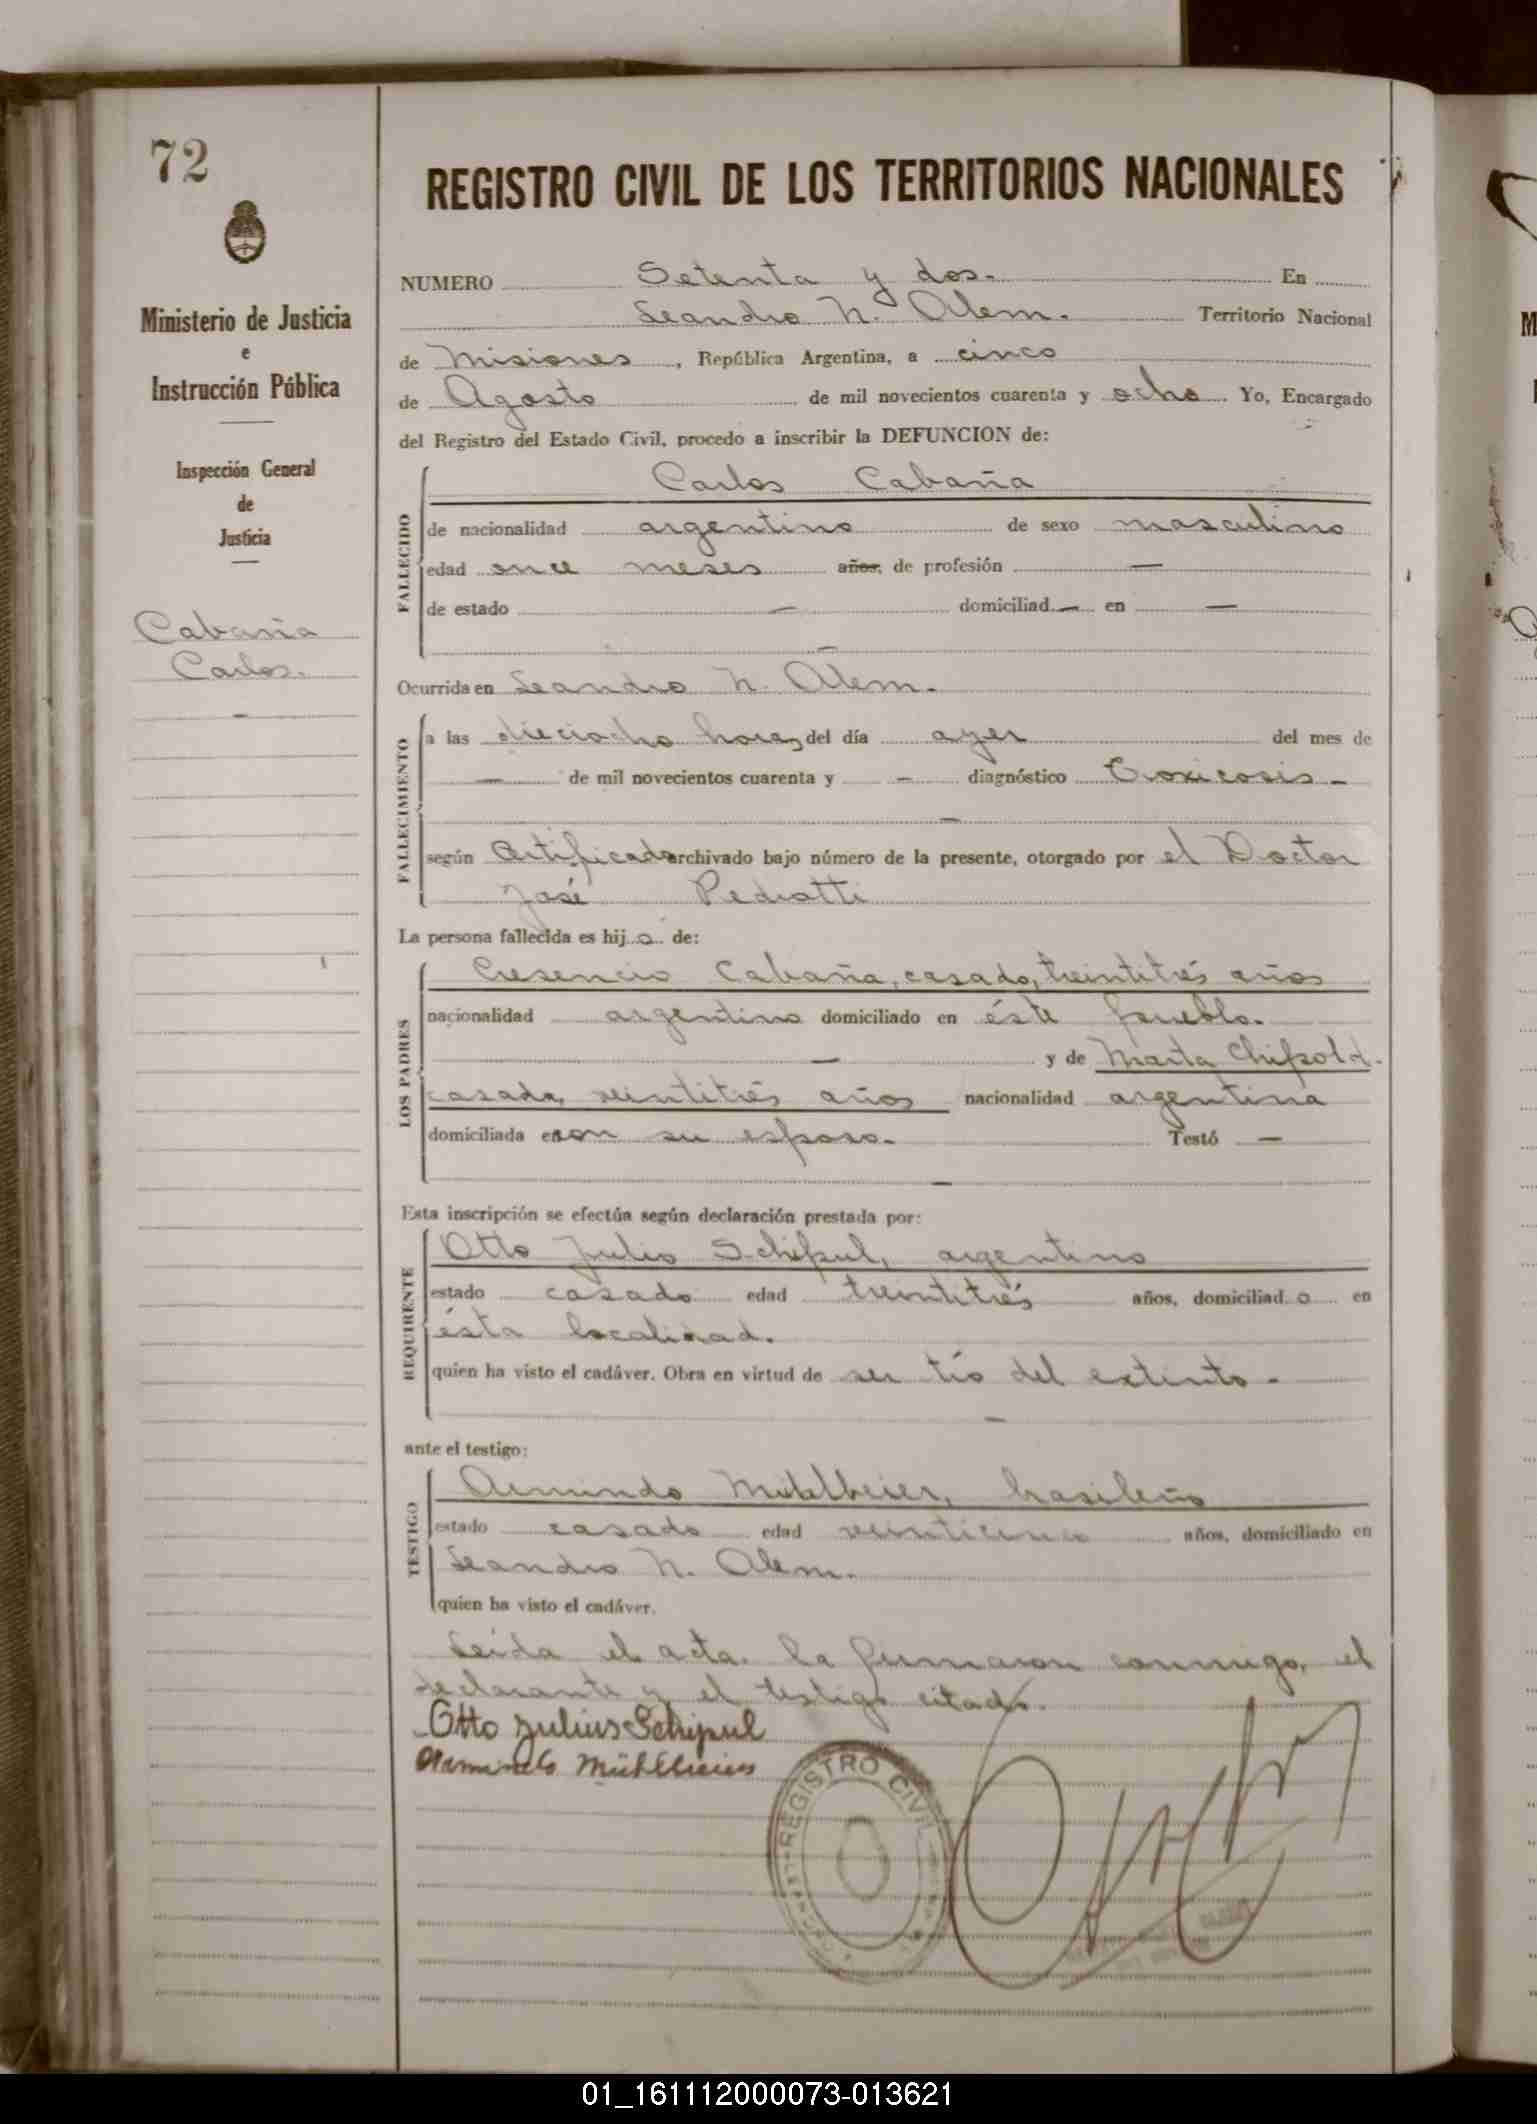 72
REGISTRO CIVIL DE LOS TERRITORIOS NACIONALES
Ministerio de Justicia
e
Instrucción Pública
Inspección General
de
Justicia
Cabaña
Carlos.
NUMERO Setenta y dos. En
Leandro N. Alem. Territorio Nacional
de Misiones, República Argentina, a cinco
de Agosto de mil novecientos cuarenta y ocho. Yo, Encargado
del Registro del Estado Civil, procedo a inscribir la DEFUNCION de:
FALLECIDO
Carlos Cabaña
de nacionalidad argentino de sexo masculino
edad once meses años, de profesión —
de estado — domiciliad — en —
Ocurrida en Leandro N. Alem.
FALLECIMIENTO
a las dieciocho horas, del día ayer del mes de
— de mil novecientos cuarenta y — diagnóstico Toxicosis -
según Certificado archivado bajo número de la presente, otorgado por el Doctor
José Pedrotti
La persona fallecida es hijo de:
LOS PADRES
Cresencio Cabaña, casado, treintitrés años
nacionalidad argentino domiciliado en éste pueblo.
— y de Marta Chipold.
casada, veintitrés años nacionalidad argentina
domiciliada en con su esposo. Testó —
Esta inscripción se efectúa según declaración prestada por:
REQUIRENTE
Otto Julio Schipul, argentino
estado casado edad treintitrés años, domiciliado en
ésta localidad.
quien ha visto el cadáver. Obra en virtud de ser tío del extinto.
ante el testigo:
TESTIGO
Armindo Mühlbeier, brasileño
estado casado edad veinticinco años, domiciliado en
Leandro N. Alem.
quien ha visto el cadáver.
Leída el acta. la firmaron conmigo, el
declarante y el testigo citado.
Otto Julius Schipul
Armindo Mühlbeier
REGISTRO CIVIL
01_161112000073-013621